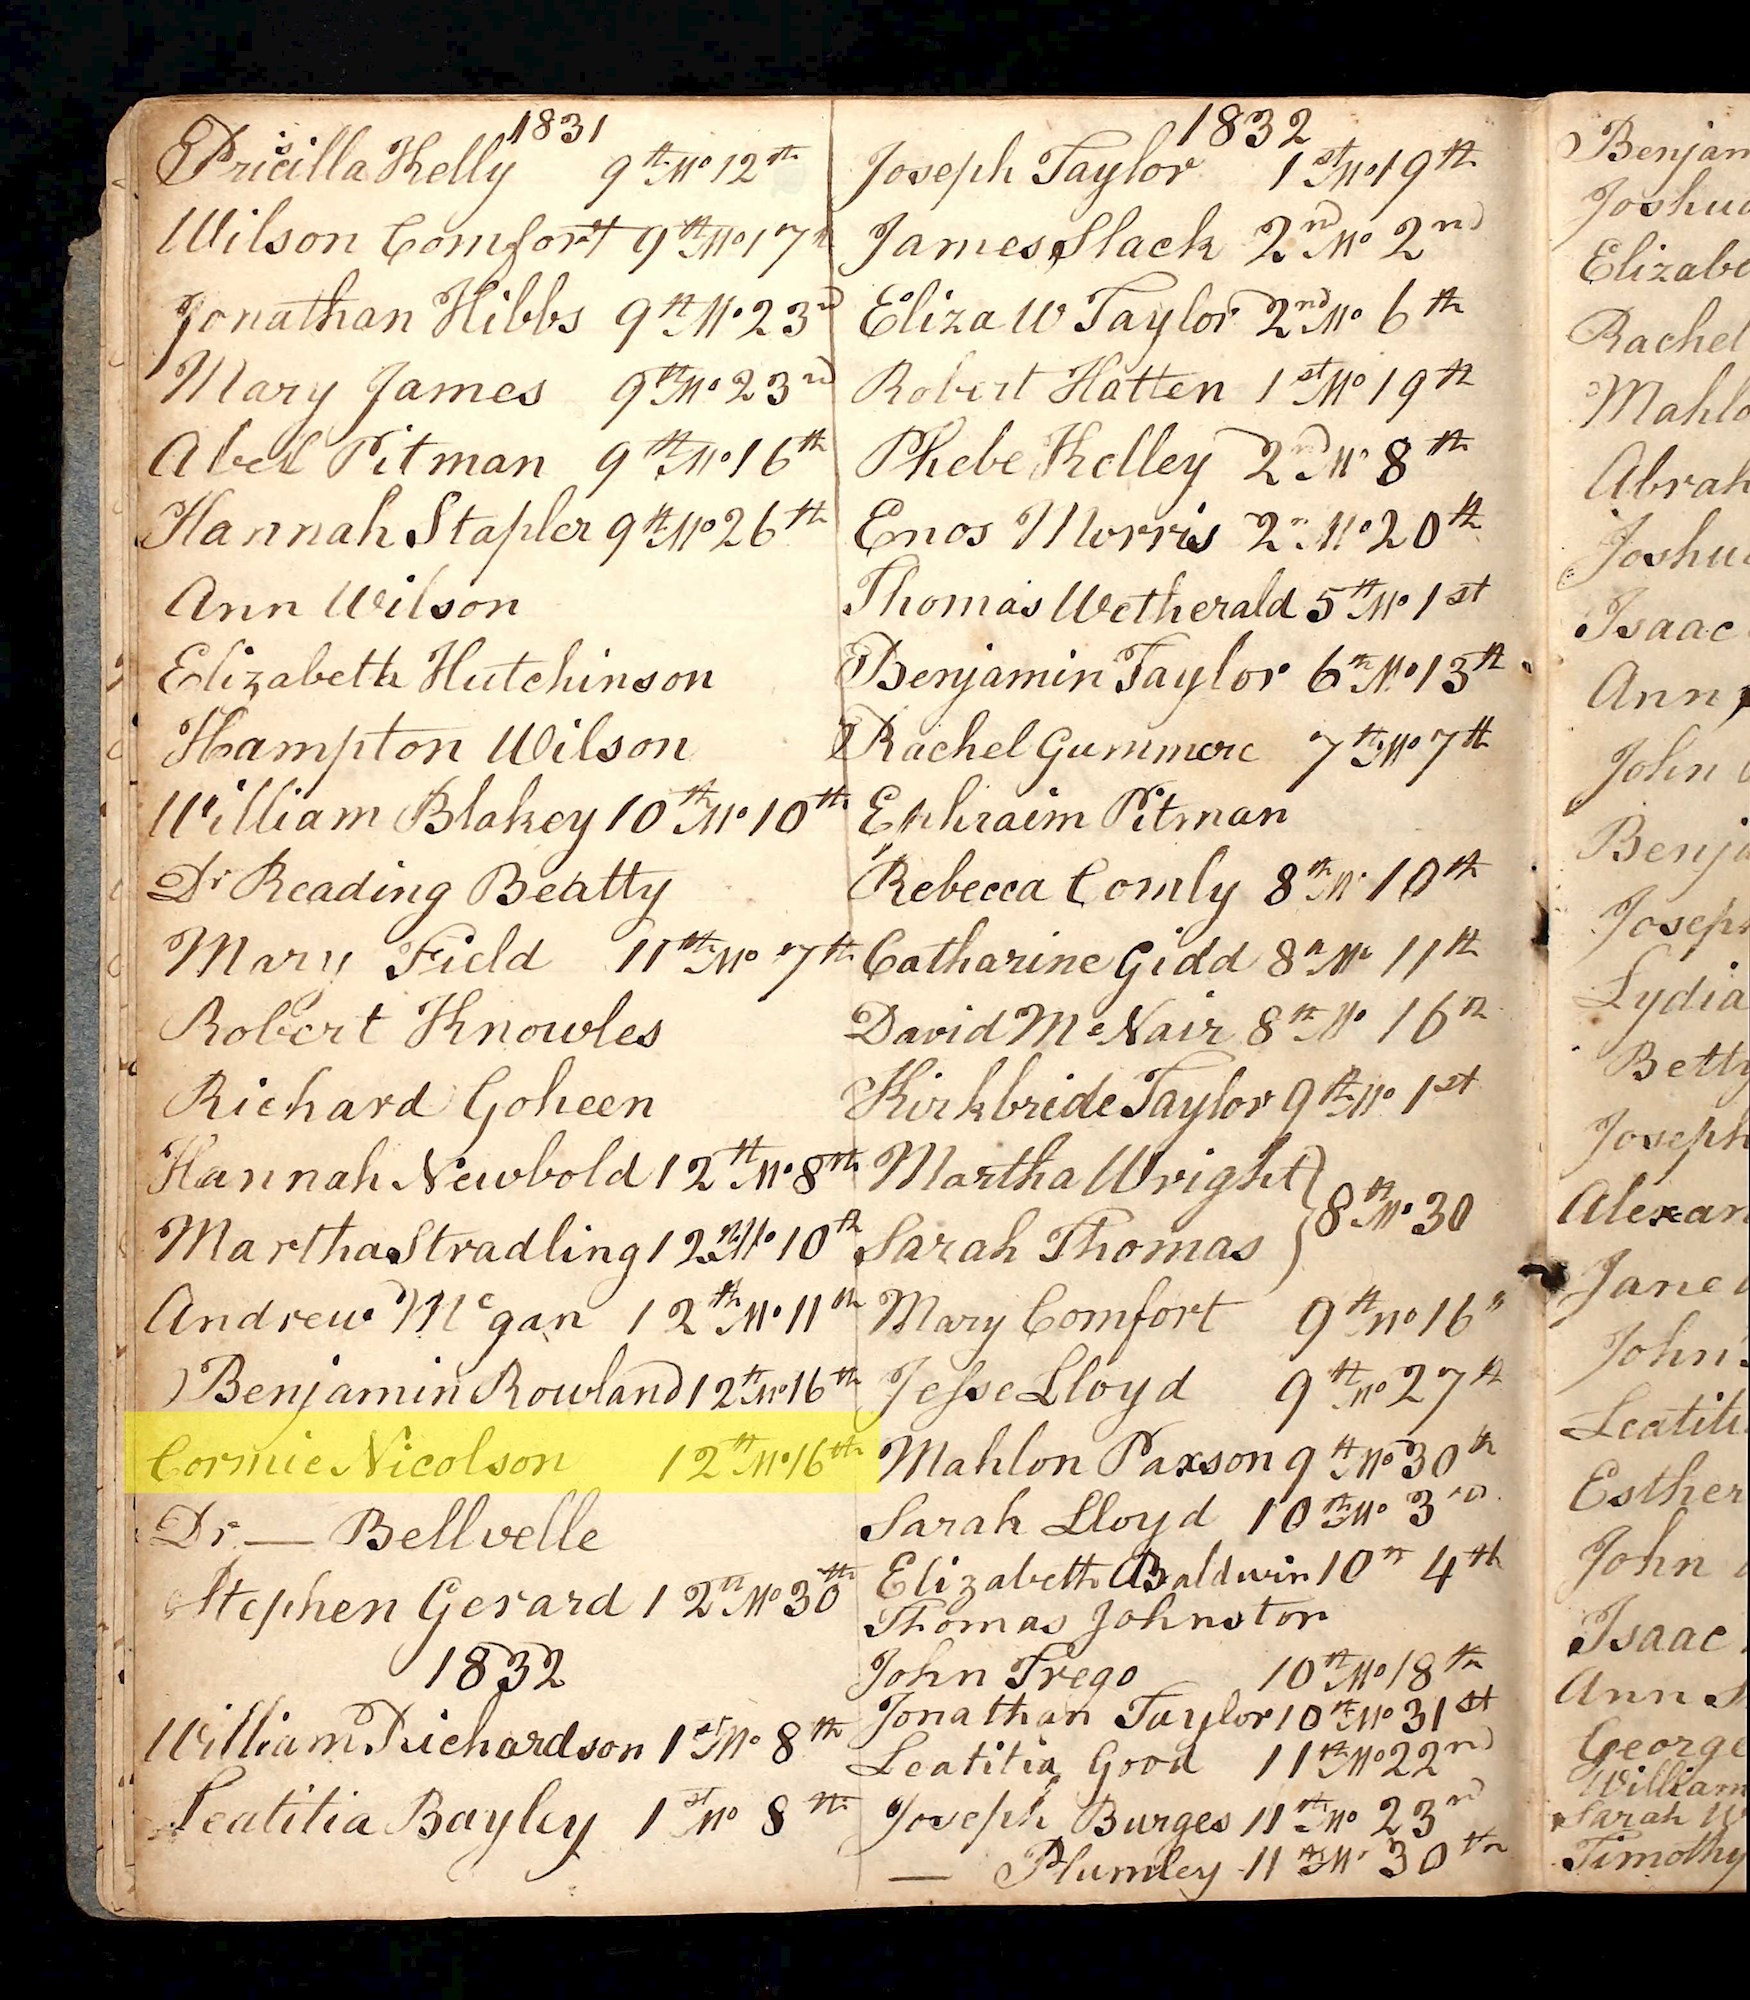 1831
Pricilla Kelly 9th Mo 12th
Wilson Comfort 9th Mo 17th
Jonathan Hibbs 9th Mo 23rd
Mary James 9th Mo 23rd
Abel Pitman 9th Mo 16th
Hannah Stapler 9th Mo 26th
Ann Wilson
Elizabeth Hutchinson
Hampton Wilson
William Blakey 10th Mo 10th
Dr Reading Beatty
Mary Field 11th Mo 7th
Robert Knowles
Richard Goheen
Hannah Newbold 12th Mo 8th
Martha Stradling 12th Mo 10th
Andrew Mcgan 12th Mo 11th
Benjamin Rowland 12th Mo 16th
Cormie Nicolson 12th Mo 16th
Dr — Bellvelle
Stephen Gerard 12th Mo 30th
1832
William Richardson 1st Mo 8th
Leatitia Bayley 1st Mo 8th
1832
Joseph Taylor 1st Mo 19th
James Slack 2nd Mo 2nd
Eliza W Taylor 2nd Mo 6th
Robert Hatten 1st Mo 19th
Phebe Kelley 2nd Mo 8th
Enos Morris 2n Mo 20th
Thomas Wetherald 5th Mo 1st
Benjamin Taylor 6th Mo 13th
Rachel Gummere 7th Mo 7th
Ephraim Pitman
Rebecca Comly 8th Mo 10th
Catharine Gidd 8th Mo 11th
David McNair 8th Mo 16th
Kirkbride Taylor 9th Mo 1st
Martha Wright
Sarah Thomas } 8th Mo 30
Mary Comfort 9th Mo 16th
Jesse Lloyd 9th Mo 27th
Mahlon Paxson 9th Mo 30th
Sarah Lloyd 10th Mo 3rd
Elizabeth Baldwin 10th 4th
Thomas Johnston
John Trego 10th Mo 18th
Jonathan Taylor 10th Mo 31st
Leatitia Good 11th Mo 22nd
Joseph Burges 11th Mo 23rd
— Plumley 11th Mo 30th
Benjam
Joshua
Elizabe
Rachel
Mahlo
Abrah
Joshu
Isaac
Ann
John
Benj
Joseph
Lydia
Betty
Joseph
Alexan
Jane
John
Leatiti
Esther
John
Isaac
Ann S
George
William
Sarah W
Timothy